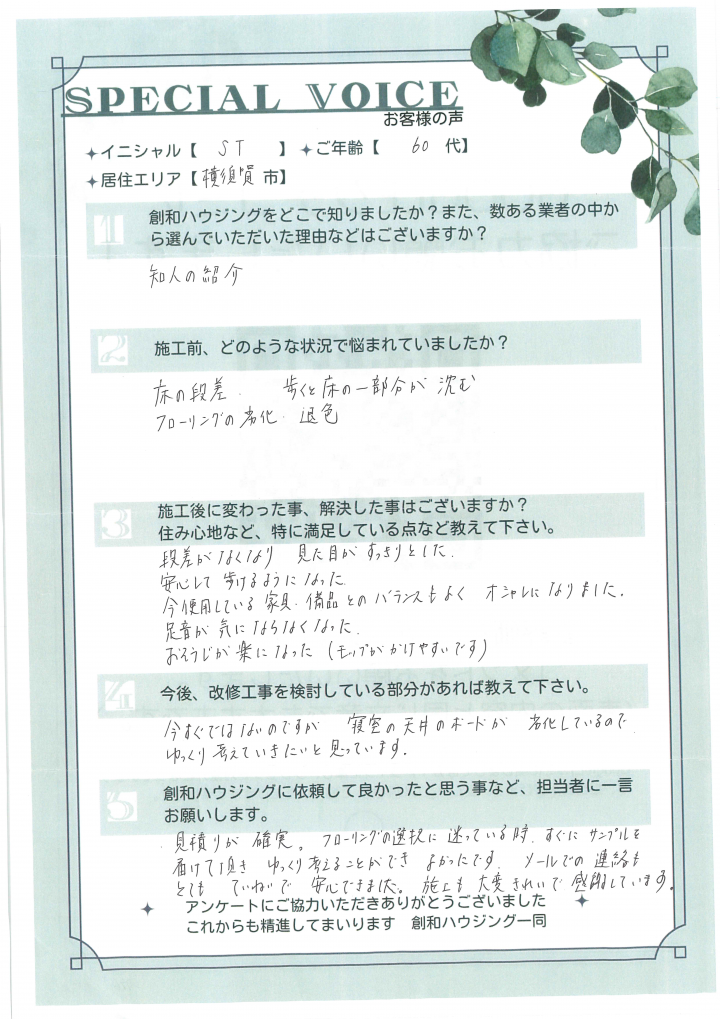 SPECIAL VOICE
お客様の声
イニシャル【 ST 】 ご年齢【 60 代】
居住エリア【横須賀 市】
1 創和ハウジングをどこで知りましたか？また、数ある業者の中か
ら選んでいただいた理由などはございますか？
知人の紹介
2 施工前、どのような状況で悩まれていましたか？
床の段差. 歩くと床の一部分が 沈む
フローリングの劣化. 退色
3 施工後に変わった事、解決した事はございますか？
住み心地など、特に満足している点など教えて下さい。
段差がなくなり 見た目が すっきりとした.
安心して 歩けるようになった.
今使用している 家具. 備品とのバランスもよく オシャレに なりました.
足音が 気に ならなくなった.
おそうじが 楽に なった (モップがかけやすいです)
4 今後、改修工事を検討している部分があれば教えて下さい。
今すぐではないのですが 寝室の天井のボードが 劣化しているので.
ゆっくり考えていきたいと思っています.
5 創和ハウジングに依頼して良かったと思う事など、担当者に一言
お願いします。
見積りが 確実。フローリングの選択に 迷っている時. すぐに サンプルを
届けて頂き ゆっくり考えることができ よかったです. メールでの 連絡も
とても ていねいで 安心できました。施工も 大変きれいで 感謝しています.
アンケートにご協力いただきありがとうございました
これからも精進してまいります 創和ハウジング一同